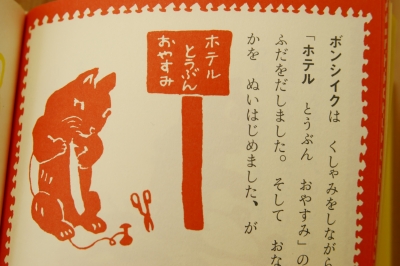 ボンシイクは くしゃみをしながら
「ホテル とうぶん おやすみ」の
ふだをだしました。そして おな
かを ぬいはじめました、が
ホテル
とうぶん
おやすみ